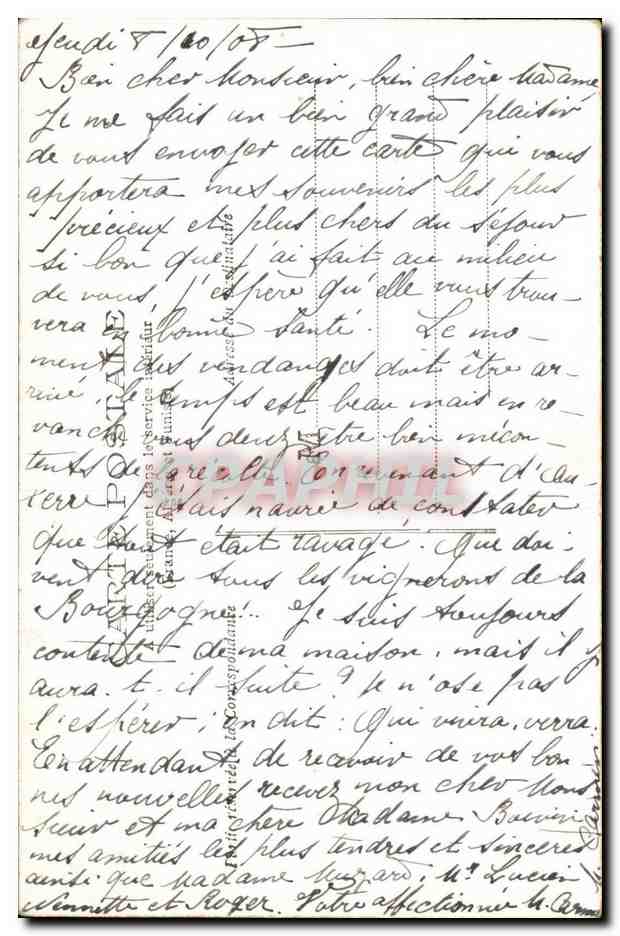 Jeudi 8/10/08 —
Bien cher Monsieur, bien chère Madame,
Je me fais un bien grand plaisir
de vous envoyer cette carte qui vous
apportera mes souvenirs les plus
précieux et plus chers du séjour
si bon que j'ai fait au milieu
de vous, j'espère qu'elle vous trou-
vera en bonne santé. Le mo-
ment des vendanges doit être ar-
rivé, le temps est beau mais en re-
vanche vous devez être bien mécon-
tents de la récolte. En revenant d'Au-
xerre j'étais navrée de constater
que tout était ravagé. Que doi-
vent dire tous les vignerons de la
Bourgogne!.. Je suis toujours
contente de ma maison, mais il y
aura-t-il suite? Je n'ose pas
l'espérer, on dit: Qui vivra, verra.
En attendant de recevoir de vos bon-
nes nouvelles recevez mon cher Mons
sieur et ma chère Madame
mes amitiés les plus tendres et sincères
ainsi que Madame Muzard, Mr Lucien
et Roger. Votre affectionnée M.
CARTE POSTALE
A utiliser seulement dans le service intérieur
(France, Algérie et Tunisie)
Partie réservée à la Correspondance
Adresse du Destinataire
M
APAPHIL